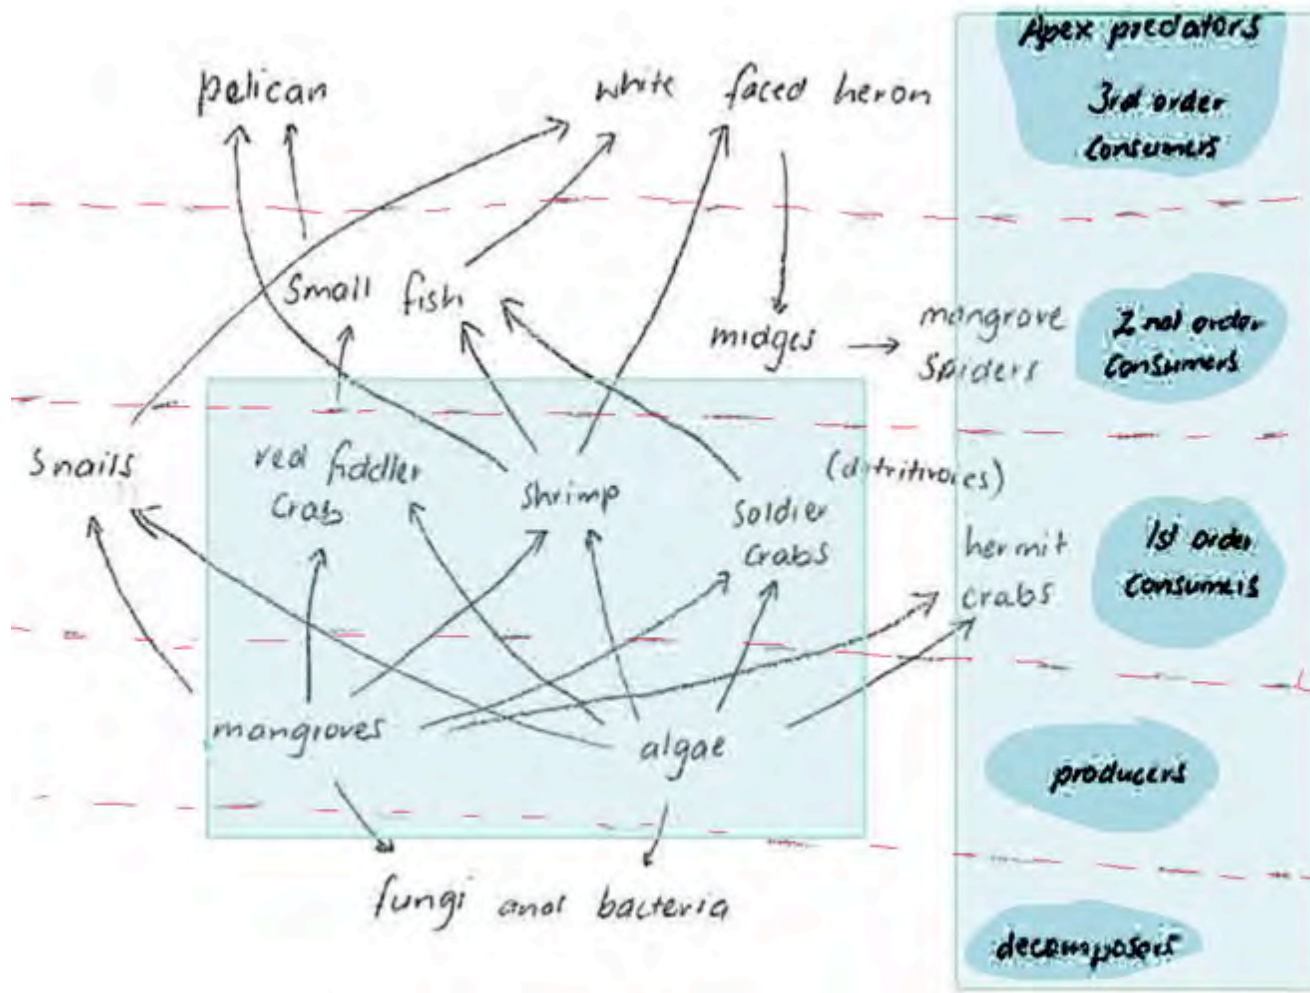 Apex predators
pelican
white faced heron
3rd order
consumers
small fish
midges
mangrove
spiders
2nd order
consumers
snails
red fiddler
crab
shrimp
soldier
crabs
(ditritivores)
hermit
crabs
1st order
consumers
mangroves
algae
producers
fungi and bacteria
decomposers